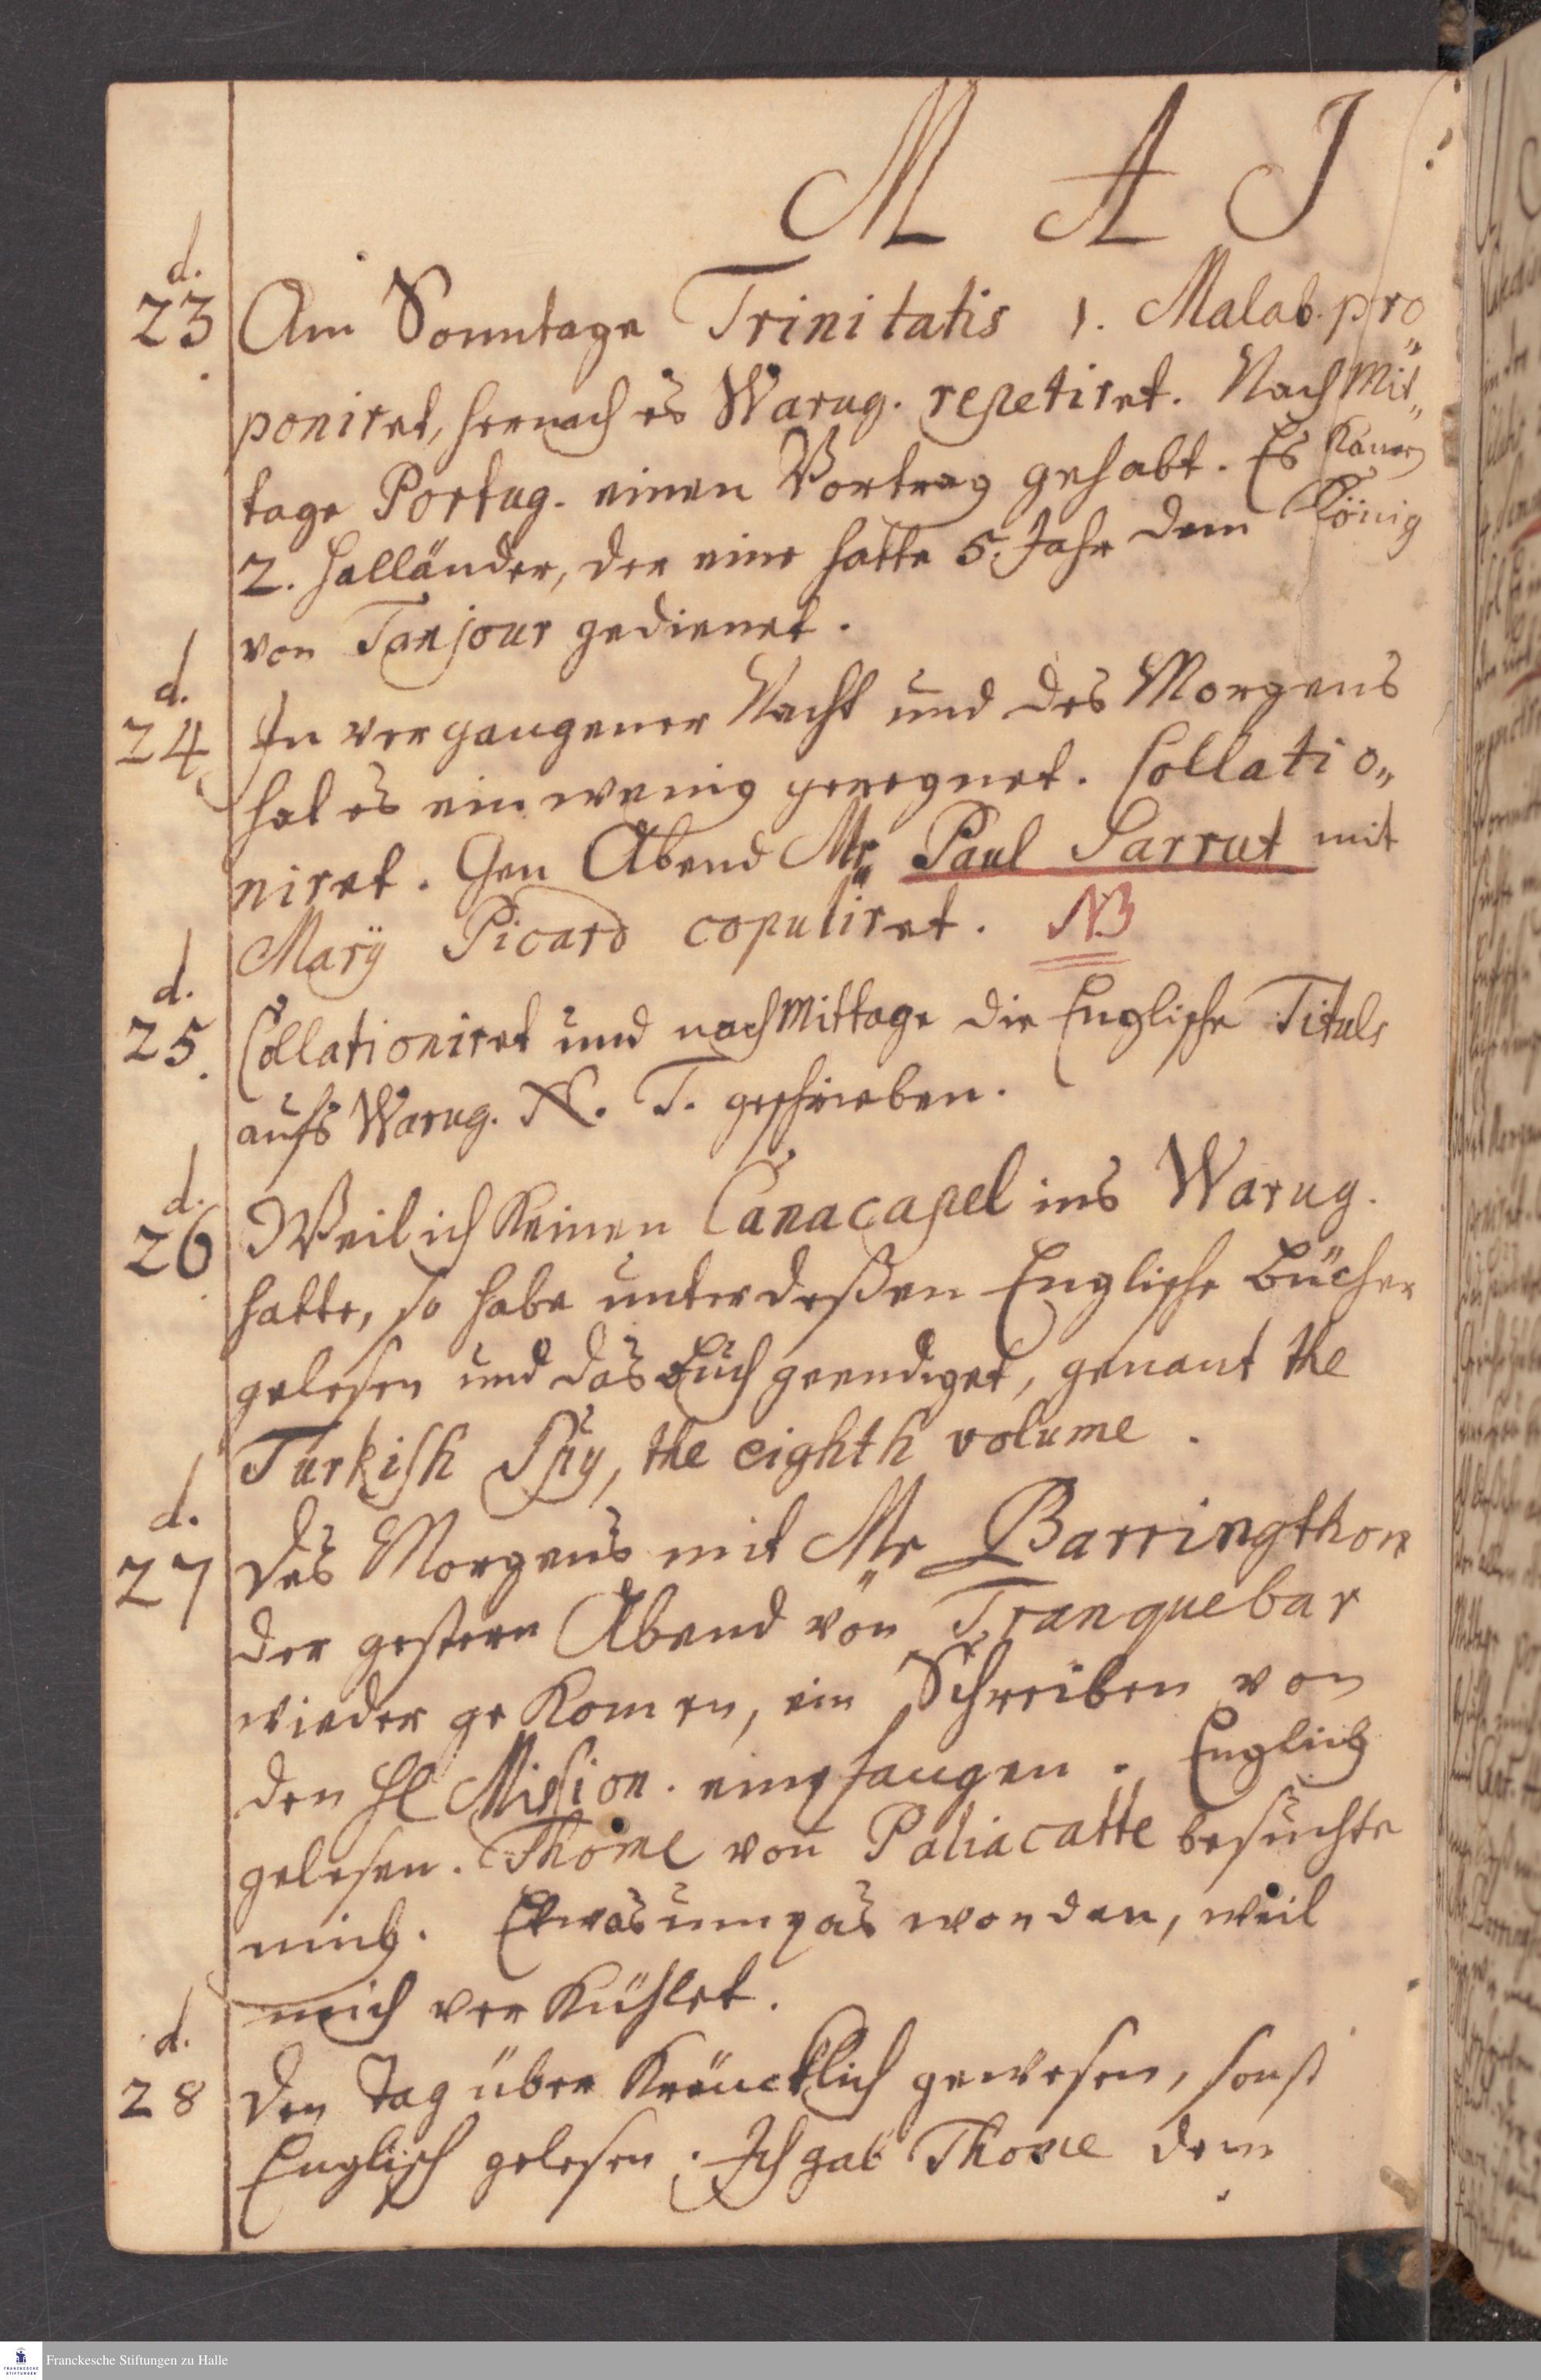 M A J
d.
23
Am Sonntage Trinitatis 1. Malab. pro„
poniret, hernach es Warug. repetiret. Nachmit„
tage Portug. einen Vortrag gehabt. Es kamen
2. Holländer, der eine hatte 5. Jahr dem König
von Tanjour gedienet.
d.
24
In vergangener Nacht und des Morgens
hat es ein wenig geregnet. Collatio„
niret. Gen Abend Mr. Paul Sarrut mit
Marÿ Picard copuliret. NB
d.
25.
Collationiret und nachmittage die Englische Tituls
aufs Warug. N. T. geschrieben.
d.
26
Weil ich keinen Canacapel ins Warug.
hatte, so habe unterdeßen Englische Bücher
gelesen und das Buch geendiget, genant the
Turkish Spy, the eighth volume.
d.
27
Des Morgens mit Mr Barringthon
der gestern Abend von Tranquebar
wieder gekomen, ein Schreiben von
den Hl Mission. empfangen. Englisch
gelesen. Thome von Paliacatte besuchte
mich. Etwas unpas worden, weil
mich verkühlet.
d.
28
Den Tag über kräncklich gewesen, sonst
Englisch gelesen. Ich gab Thome dem
Franckesche Stiftungen zu Halle